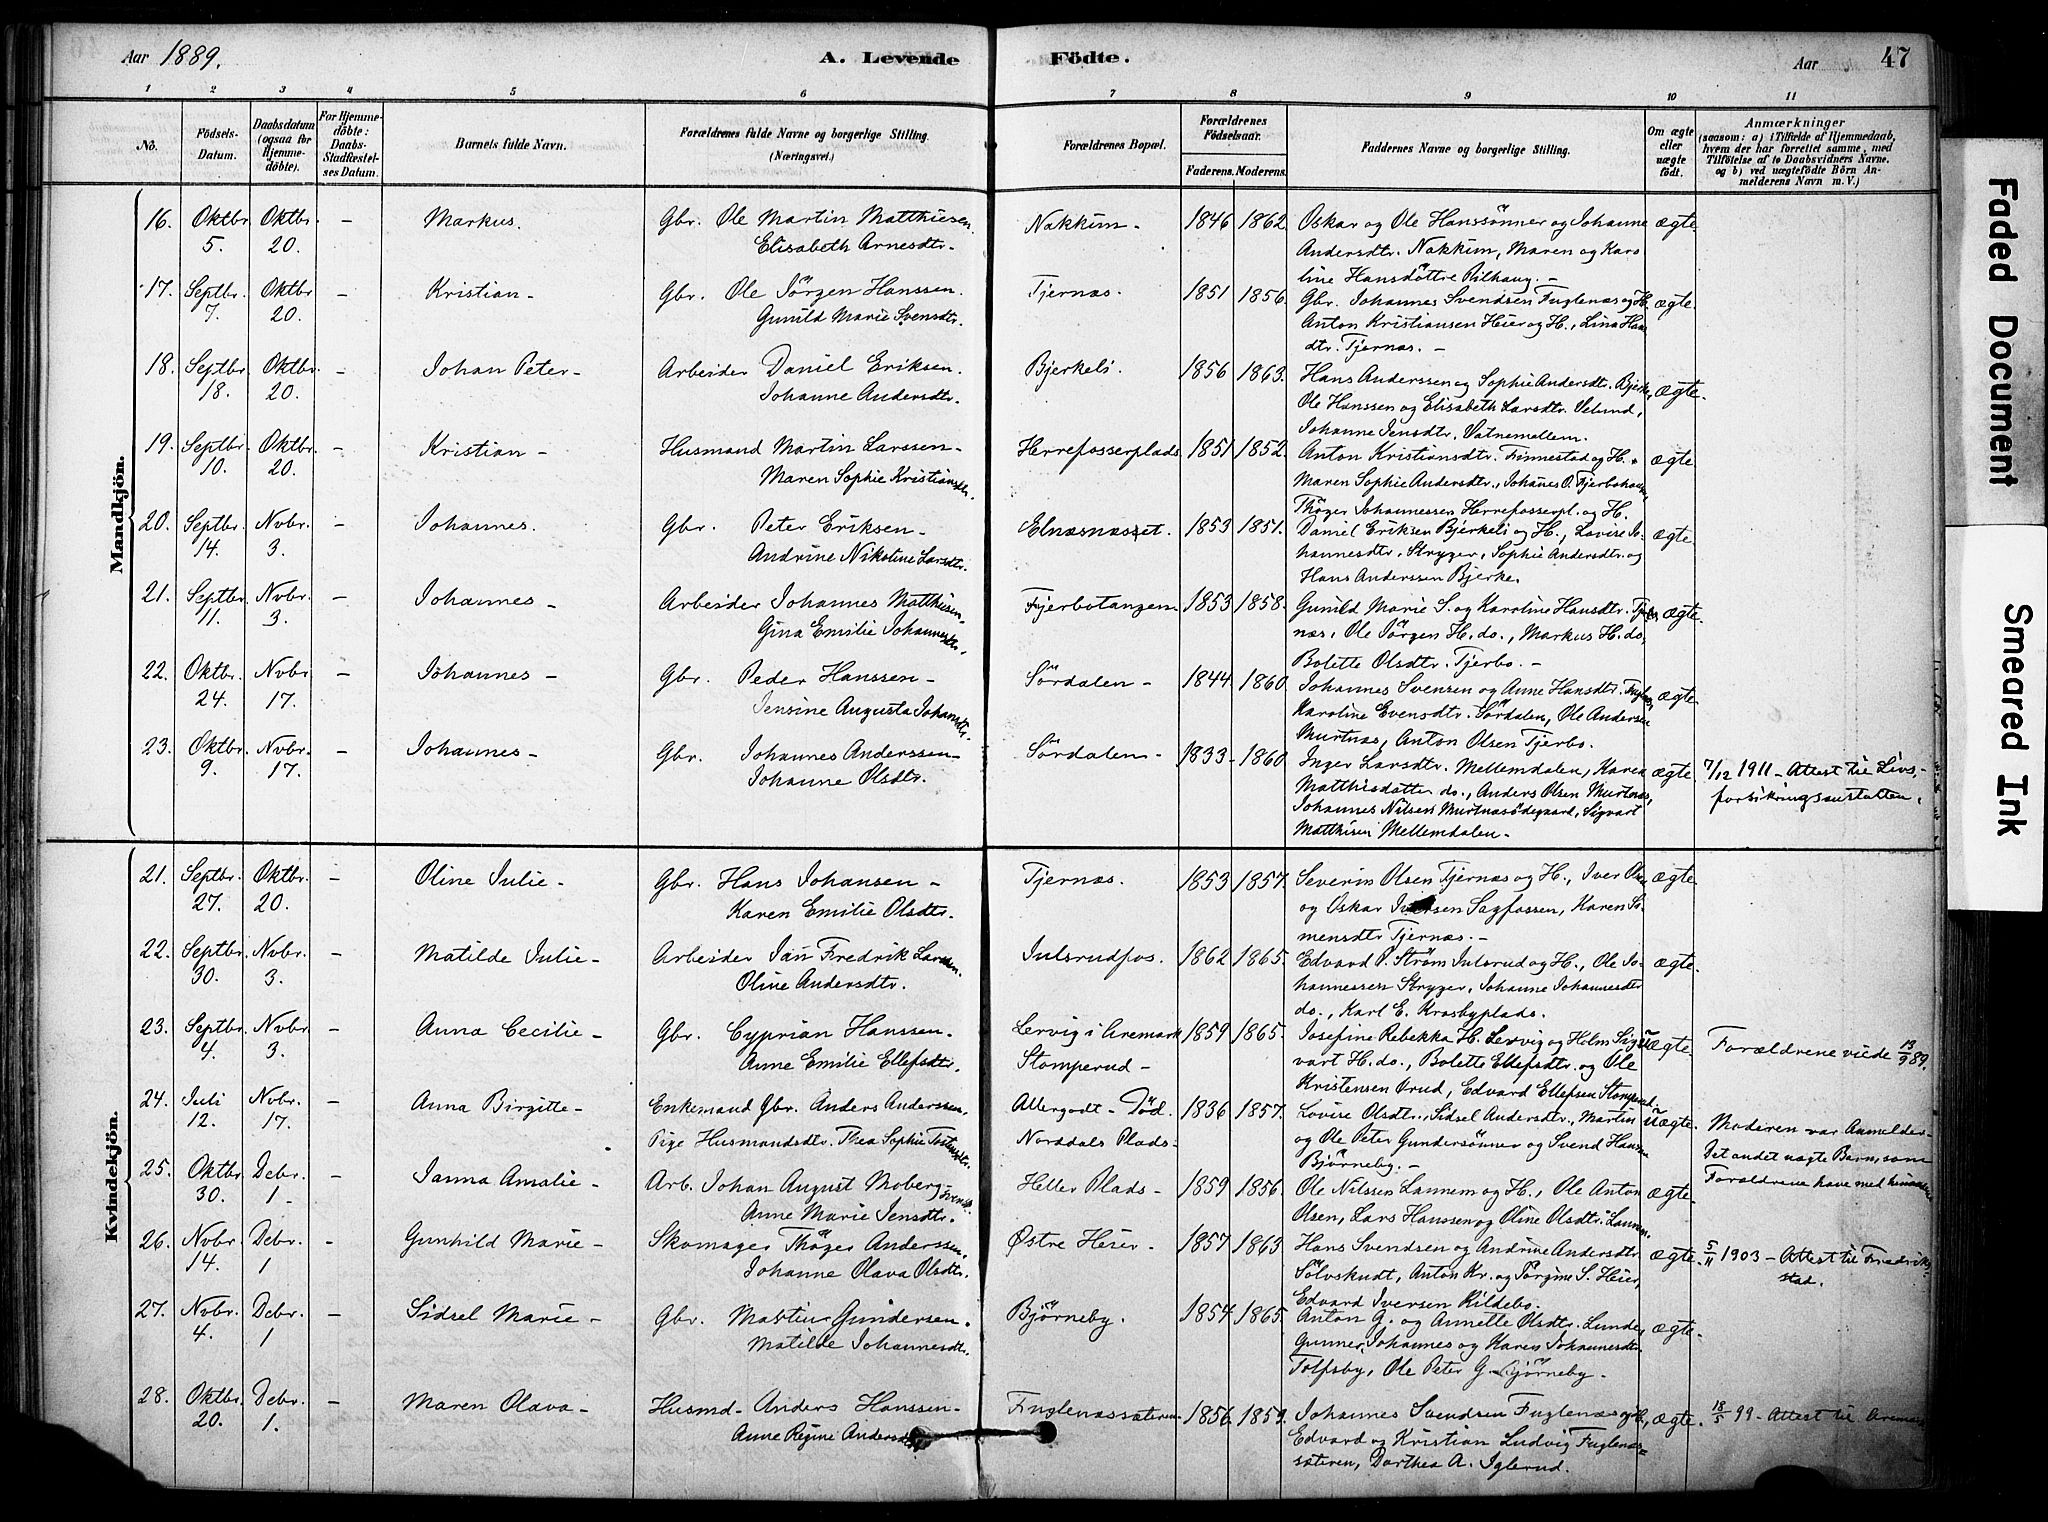 Aar 1889.
A. Levende Födte.
Aar
47
1 2 3 4 5 6 7 8 9 10 11
No.
Födsels-Datum.
Daabsdatum (ogsaa for Hjemmedöbte).
For Hjemmedöbte: Daabs-Stadfæstelses Datum.
Barnets fulde Navn.
Forældrenes fulde Navne og borgerlige Stilling. (Næringsvei.)
Forældrenes Bopæl.
Forældrenes Födselsaar.
Faderens. Moderens.
Faddernes Navne og borgerlige Stilling.
Om ægte eller uægte födt.
Anmærkninger
(saasom: a) i Tilfælde af Hjemmedaab, hvem der har forrettet samme, med Tilföielse af to Daabsvidners Navne. og b) ved uægtefödte Börn Anmelderens Navn m. V.)
Mandkjön.
16. Oktbr. 5. Oktbr. 20. – Markus. Gbr. Ole Martin Matthiesen Elisabeth Arnesdtr. Nakkim – 1846 1862 Oskar og Ole Hanssönner og Johanne Andersdtr. Nakkim, Maren og Karoline Hansdöttre Rilhaug. – ægte
17. Septbr. 7. Oktbr 20. – Kristian – Gbr. Ole Jörgen Hanssen. Gunild Marie Svensdtr. Tjernæs. 1851 1856 Gbr. Johannes Svendsen Fuglenæs og H. Anton Kristiansen Heier og H., Lina Hansdtr. Tjernæs. – ægte.
18. Septbr 18. Oktbr. 20. – Johan Peter – Arbeider Daniel Eriksen. Johanne Andersdtr. Bjerkeli. 1856 1863. Hans Anderssen og Sophie Andersdtr. Bjerke, Ole Hanssen og Elisabeth Larsdtr. Johanne Jensdtr. Vatnemellem. ægte.
19. Septbr 10. Oktbr. 20. – Kristian – Husmand Martin Larssen – Maren Sophie Kristiansdtr. Herrefosserplads 1851 1852. Anton Kristiansdtr. Finnestad og H. Maren Sophie Andersdtr., Johannes O. Tjerbo Thöger Johannessen Herrefosserpl. og H. ægte
20. Septbr. 14. Novbr. 3. – Johannes. Gbr. Peter Eriksen – Andrine Nikoline Larsdtr. Elnæsnæsset. 1853 1851. Daniel Eriksen Bjerkeli og H., Lovise Johannesdtr. Stryger, Sophie Andersdtr. og Hans Anderssen Bjerke. ægte.
21. Septbr. 11. Nvbr. 3. – Johannes – Arbeider Johannes Matthisen – Gina Emilie Johannesdtr. Tjerbotangen 1853 1858. Gunild Marie S. og Karoline Hansdtr. Tjernæs, Ole Jörgen H. do., Markus H. do, Bolette Olsdtr. Tjerbo. – ægte.
22. Oktbr. 24. Nvbr 17. – Johannes – Gbr. Peder Hanssen – Jensine Augusta Johansdtr. Sördalen – 1844 1860. Johannes Svensen og Anne Hansdtr. Karoline Evensdtr. Sördalen, Ole Andersen Murtnæs, Anton Olsen Tjerbo. ægte
23. Oktbr. 9. Nvbr. 17. – Johannes – Gbr. Johannes Anderssen – Johanne Olsdtr. Sördalen – 1833 – 1860 Inger Larsdtr. Mellemdalen, Karen Matthisdatter do., Anders Olsen Murtnæs, Johannes Nilsen Murtnæsödegaard, Sigvart Matthisen Mellemdalen. – ægte. 7/12 1911 – Attest til Livsforsikringsanstalten.
Kvindekjön.
21. Septbr. 27. Oktbr. 20. – Oline Julie – Gbr. Hans Johansen – Karen Emilie Olsdtr. Tjernæs. 1853 1857. Severin Olsen Tjernæs og H., Iver Olsen og Oskar Iversen Sagfossen, Karen Simensdtr Tjernæs. – ægte
22. Septbr. 30. Nvbr. 3. – Matilde Julie – Arbeider Jan Fredrik Larsen. Oline Andersdtr. Julsrudfos. 1862 1865. Edvard P. Ström Julsrud og H., Ole Johannessen Stryger, Johanne Johannesdtr do., Karl E. Krosbyplads. ægte
23. Septbr. 4. Nvbr. 3. – Anna Cecilie – Gbr. Cyprian Hanssen. Anne Emilie Ellefsdtr. Lervig i Aremark Stomperud – 1859 1865. Josefine Rebekka H. Lervig og Holm Sigvart H. do., Bolette Ellefsdtr. og Ole Kristensen Orud, Edvard Ellefsen Stomperud. uægte. Forældrene viede 13/9 89.
24. Juli 12. Nvbr. 17. – Anna Birgitte – Enkemand Gbr. Anders Anderssen. Pige Husmandsdtr. Thea Sophie Allergodt – Död. Norddals Plads – 1836 1857. Lovise Olsdtr., Sidsel Andersdtr., Martin og Ole Peter Gundersönner og Svend Hansen Björneby. – uægte. Moderen var Anmelder. Det andet uægte Barn, som Forældrene have med hinanden
25. Oktbr. 30. Debr. 1. – Janna Amalie – Arb. Johan August Moberg Anne Marie Jensdtr. Heller Plads – 1859 1856. Ole Nilssen Lannem og H., Ole Anton Olsen, Lars Hanssen og Oline Olsdtr. Lannem. ægte.
26. Nvbr. 14. Debr. 1 – Gunhild Marie – Skomager Thöger Anderssen. Johanne Olava Olsdtr. Østre Heier – 1857 1863 Hans Svendsen og Andrine Andersdtr Sölvskudt, Anton Kr. og Jörgine S. Heier, Edvard Iversen Kildebo. ægte. 5/11 1903 – Attest til Fredrikstad.
27. Nvbr. 4. Debr. 1 – Sidsel Marie – Gbr. Martin Gundersen. Matilde Johannesdtr. Björneby. 1854 1865. Anton G. og Annette Olsdtr. Lunde, Gunner Johannes og Karen Johannesdtr Tolfsby, Ole Peter G. Björneby. ægte.
28. Oktbr. 20. Debr. 1. – Maren Olava – Husmd – Anders Hanssen – Anne Regine Andersdtr Fuglenæssæteren 1856 1859. Johannes Svendsen Fuglenæs og H., Edvard og Kristian Ludvig Fuglenæssæteren, Dorthea A. Iglerud. ægte. 18/5 99 – Attest til Aremark
Faded Document
Smeared Ink